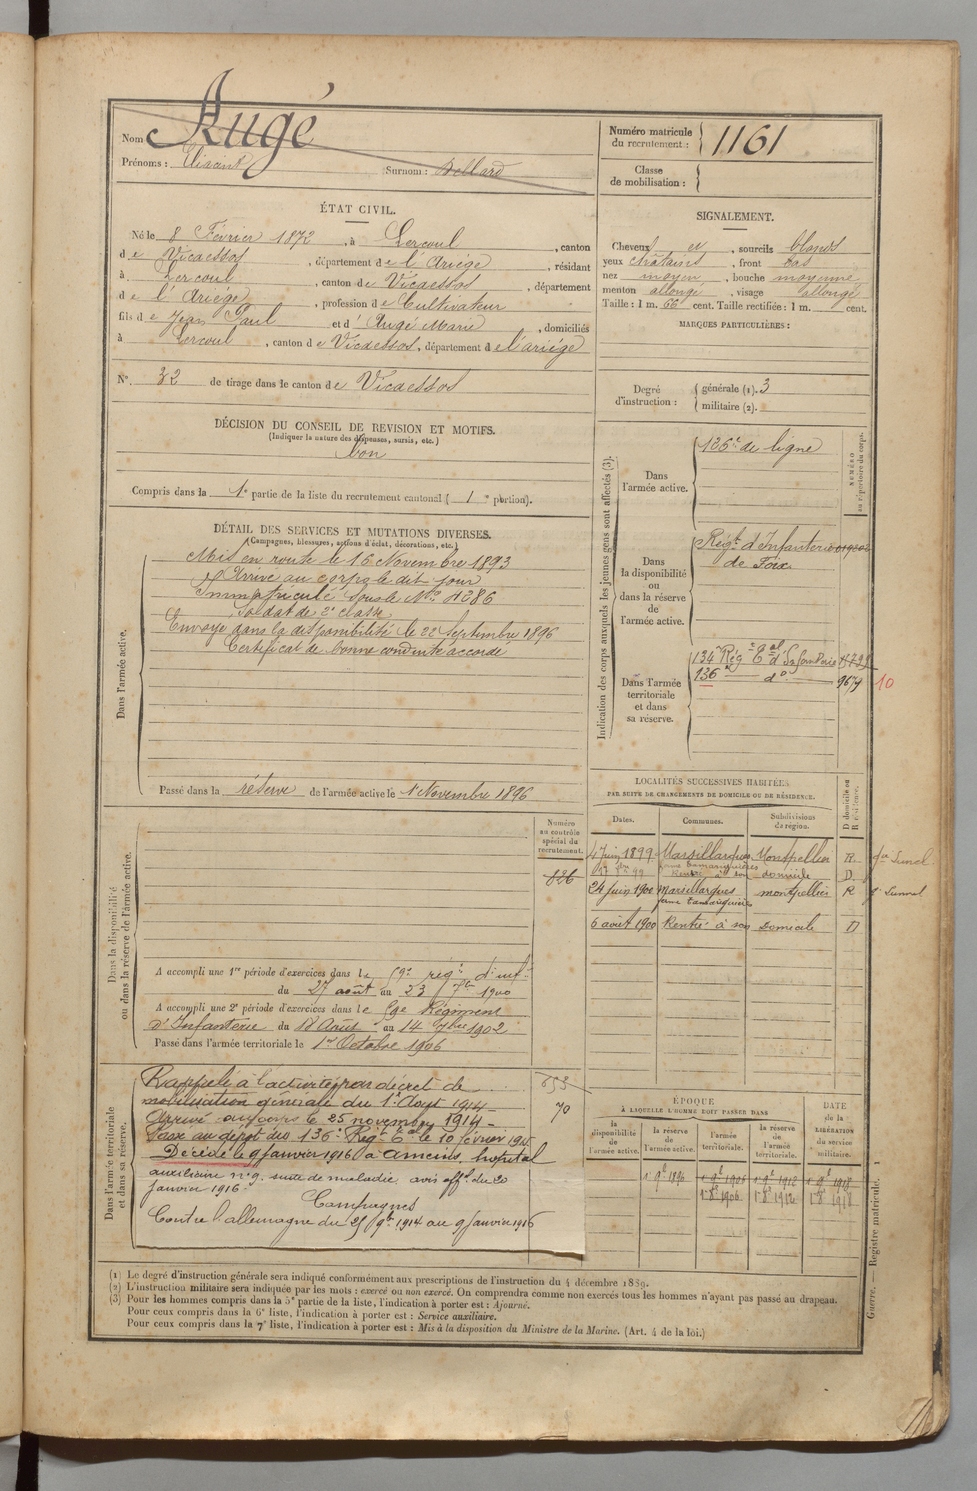 Nom Augé
Prénoms :
Surnom : Bellard
Numéro matricule du recrutement : 1161
Classe de mobilisation :
ÉTAT CIVIL.
Né le 8 Février 1872, à Lercoul, canton
de Vicdessos, département de l'Ariège, résidant
à Lercoul, canton de Vicdessos, département
de l'Ariège, profession de Cultivateur
fils de Jean Paul et d'Augé Marie, domiciliés
à Lercoul, canton de Vicdessos, département de l'ariège
N°. 32 de tirage dans le canton de Vicdessos
SIGNALEMENT.
Cheveux et, sourcils blonds
yeux châtains, front bas
nez moyen, bouche moyenne
menton allongé, visage allongé
Taille : 1 m. 66 cent. Taille rectifiée : 1 m. cent.
MARQUES PARTICULIÈRES :
Degré d'instruction : générale (1). 3
militaire (2).
DÉCISION DU CONSEIL DE REVISION ET MOTIFS.
(Indiquer la nature des dispenses, sursis, etc.)
bon
Compris dans la 1e partie de la liste du recrutement cantonal ( 1e portion).
DÉTAIL DES SERVICES ET MUTATIONS DIVERSES.
(Campagnes, blessures, actions d'éclat, décorations, etc.)
Dans l'armée active.
Mis en route le 16 Novembre 1893
Arrivé au corps le dit jour
Immatriculé sous le No 4286
Soldat de 2e classe
Envoyé dans la disponibilité le 22 Septembre 1896
Certificat de bonne conduite accordé
Passé dans la réserve de l'armée active le 1r Novembre 1896
Indication des corps auxquels les jeunes gens sont affectés (3).
NUMÉRO au répertoire du corps.
Dans l'armée active.
126e de ligne
Dans la disponibilité ou dans la réserve de l'armée active.
Régt d'Infanterie
de Foix
Dans l'armée territoriale et dans sa réserve.
134e Rég. Eal d'Infanterie
136e do 9674 10
LOCALITÉS SUCCESSIVES HABITÉES
PAR SUITE DE CHANGEMENTS DE DOMICILE OU DE RÉSIDENCE.
D domicile ou R résidence.
Dates. Communes. Subdivisions de région.
4 Juin 1899 Marsillargues Montpellier R
Rentré à son domicile D
24 juin 1900 Marsillargues montpellier R
6 août 1900 Rentré à son Domicile D
Dans la disponibilité ou dans la réserve de l'armée active.
Numéro au contrôle spécial du recrutement.
626
A accompli une 1re période d'exercices dans le 59e régt d'inf.
du 27 août au 23 7bre 1900
A accompli une 2e période d'exercices dans le 59e Régiment
d'Infanterie du 18 Août au 14 7bre 1902
Passé dans l'armée territoriale le 1er Octobre 1906
Dans l'armée territoriale et dans sa réserve.
Rappelé à l'activité par décret de
mobilisation générale du 1er Aout 1914
Arrivé au corps le 25 novembre 1914
Passé au dépôt du 136e Régt Tal le 10 février 1915
Décédé le 9 janvier 1916 à Amiens hopital
auxiliaire n° 9. suite de maladie. avis offel du 20
janvier 1916.
Campagnes
Contre l'allemagne du 25 9bre 1914 au 9 janvier 1916
70
ÉPOQUE
À LAQUELLE L'HOMME DOIT PASSER DANS
DATE de la LIBÉRATION du service militaire.
la disponibilité de l'armée active.
la réserve de l'armée active.
l'armée territoriale.
la réserve de l'armée territoriale.
1r 9bre 1896 1r 9bre 1906 1r 9bre 1912 1r 9bre 1918
1r 8bre 1906 1r 8bre 1912 1r 8bre 1918
(1) Le degré d'instruction générale sera indiqué conformément aux prescriptions de l'instruction du 4 décembre 1889.
(2) L'instruction militaire sera indiquée par les mots : exercé ou non exercé. On comprendra comme non exercés tous les hommes n'ayant pas passé au drapeau.
(3) Pour les hommes compris dans la 5e partie de la liste, l'indication à porter est : Ajourné.
Pour ceux compris dans la 6e liste, l'indication à porter est : Service auxiliaire.
Pour ceux compris dans la 7e liste, l'indication à porter est : Mis à la disposition du Ministre de la Marine. (Art. 4 de la loi.)
Guerre. — Registre matricule. 1